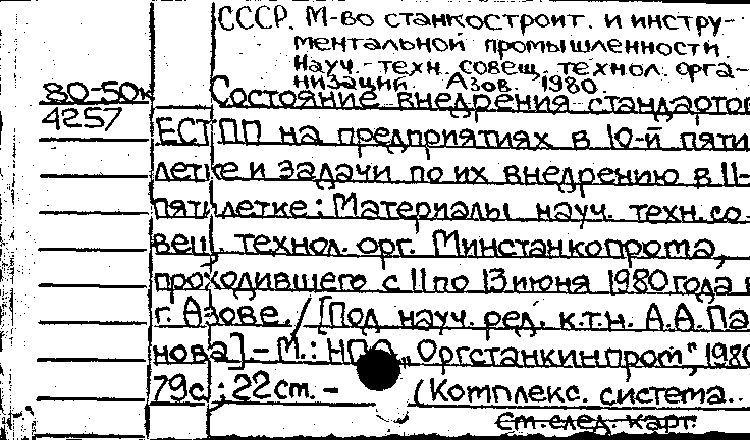 СССР. М-во станкостроит. и инстру-
ментальной промышленности.
Науч.-техн. совещ. технол. орга-
низаций. Азов. 1980.
80-50к
Состояние внедрения стандартов
4257
ЕСТПП на предприятиях в 10-й пяти
летке и задачи по их внедрению в 11-
пятилетке: Материалы науч. техн. со-
вещ. технол. орг. Минстанкопрома,
проходившего с 11 по 13 июня 1980 года в
г. Азове. / [Под науч. ред. к.т.н. А.А. Па
нова] – М.: НПО „Оргстанкинпром", 1980
79с.; 22 ст. – (Комплекс. система..
См. след. карт.